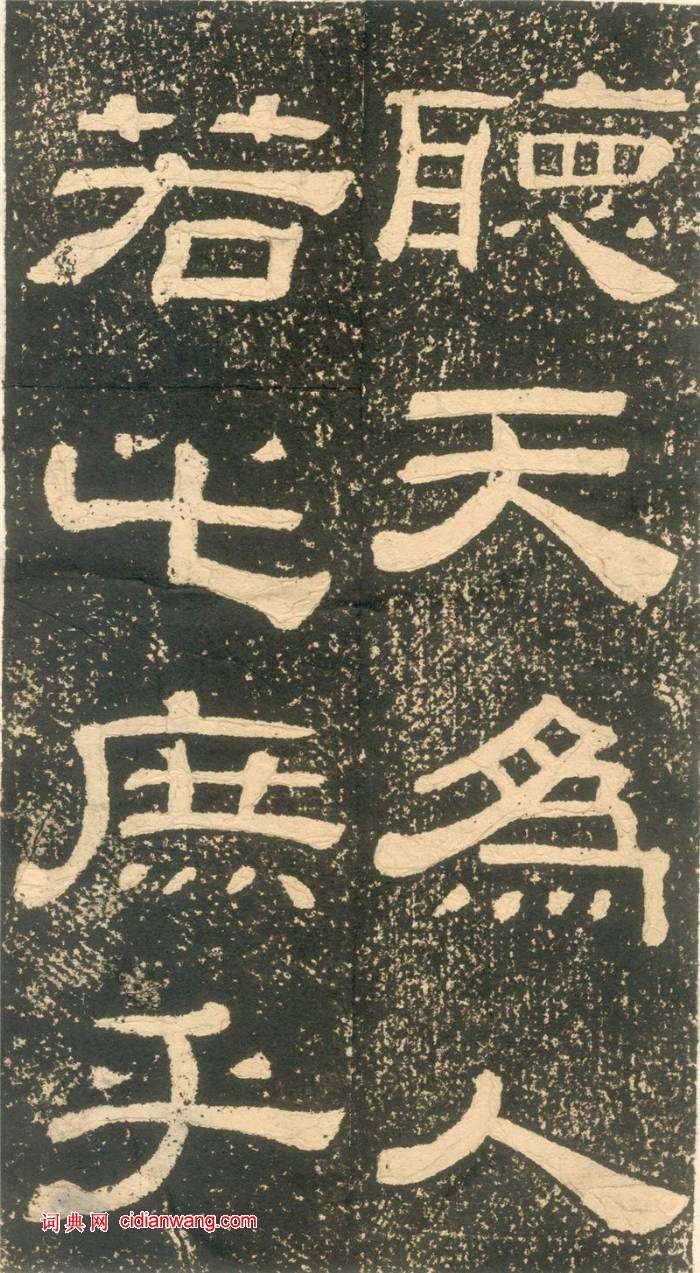 聽天為人
若庶乎
词典网 cidianwang.com